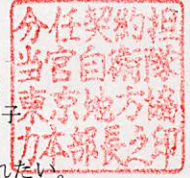 分任契約担
当官自衛隊
東京地方協
子
力本部長之印
れたい。